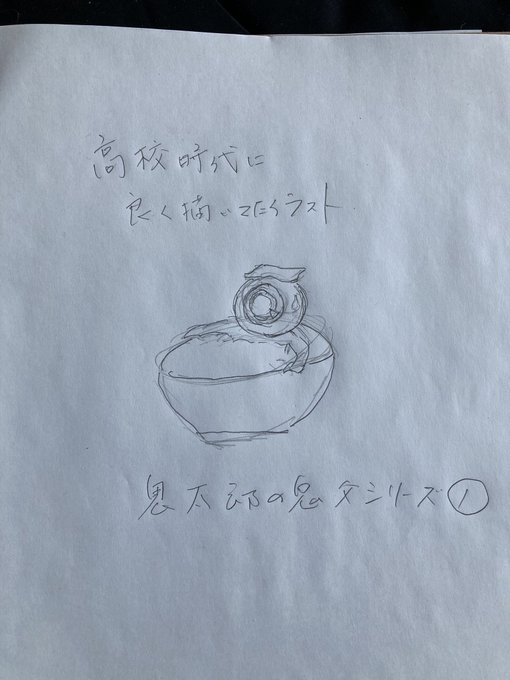 高校時代に
良く描いてたイラスト
鬼太郎の鬼父シリーズ①